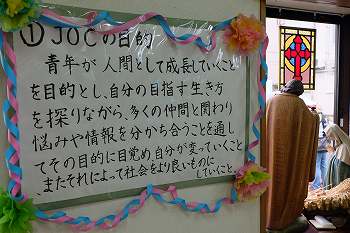 ①JOCの目的
青年が人間として成長していくこと
を目的とし、自分の目指す生き方
を探りながら、多くの仲間と関わり
悩みや情報を分かち合うことを通し
てその目的に目覚め、自分が変っていくこと
、またそれによって社会をより良いものに
していくこと。